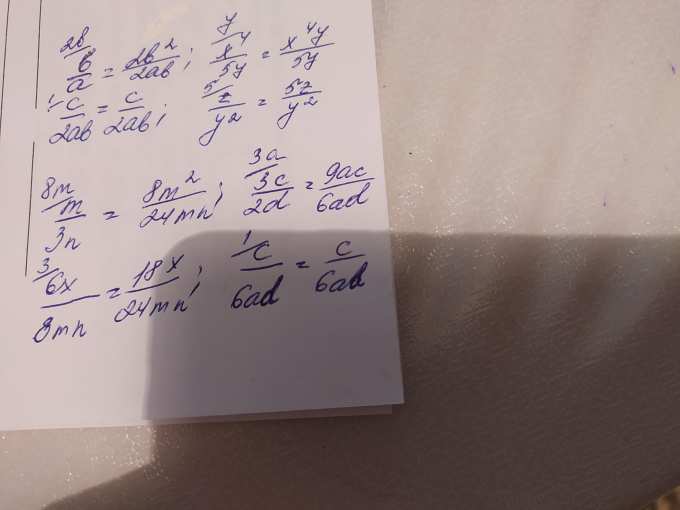 2b/ b/a = 2b²/2ab; y/ x⁴/5y = x⁴y/5y
1/ c/2ab = c/2ab; 5/ z/y² = 5z/y²
8m/ m/3n = 8m²/24mn; 3a/ 3c/2d = 9ac/6ad
3/ 6x/8mn = 18x/24mn; 1/ c/6ad = c/6ad